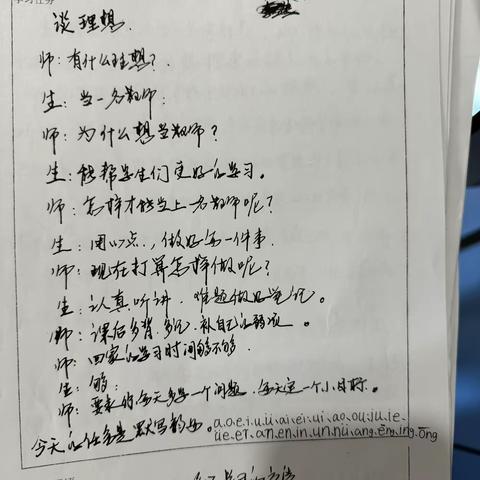 学习任务
谈理想.
师:有什么理想?
生:当一名教师.
师:为什么想当教师?
生:能帮学生们更好的学习。
师:怎样才能当上一名教师呢?
生:用心点.,做好每一件事.
师:现在打算怎样做呢?
生:认真听讲.难题做好笔记。
师:课后多背.多记.补自己的弱项。
师:回家的学习时间够不够.
生:够.
师:要求你每天多学一个问题.每天定一个小目标.
今天的任务是默写韵母.a.o.e.i.u.ü.ai.ei.ui.ao.ou.iu.ie.
üe.er.an.en.in.un.ün.ang.eng.ing.ong